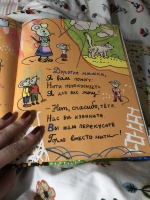 – Дорогая мышка,
Я вам помогу.
Нити перекусить
Я для вас могу.
– Нет, спасибо, тётя.
Нас вы извините.
Вы нам перекусите
Горло вместо нити...!